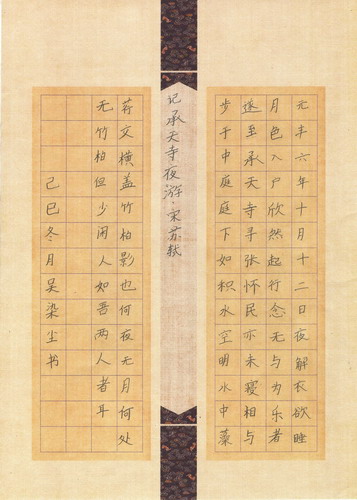 记承天寺夜游·宋苏轼
元丰六年十月十二日夜解衣欲睡
月色入户欣然起行念无与为乐者
遂至承天寺寻张怀民亦未寝相与
步于中庭庭下如积水空明水中藻
荇交横盖竹柏影也何夜无月何处
无竹柏但少闲人如吾两人者耳
己巳冬月吴染尘书